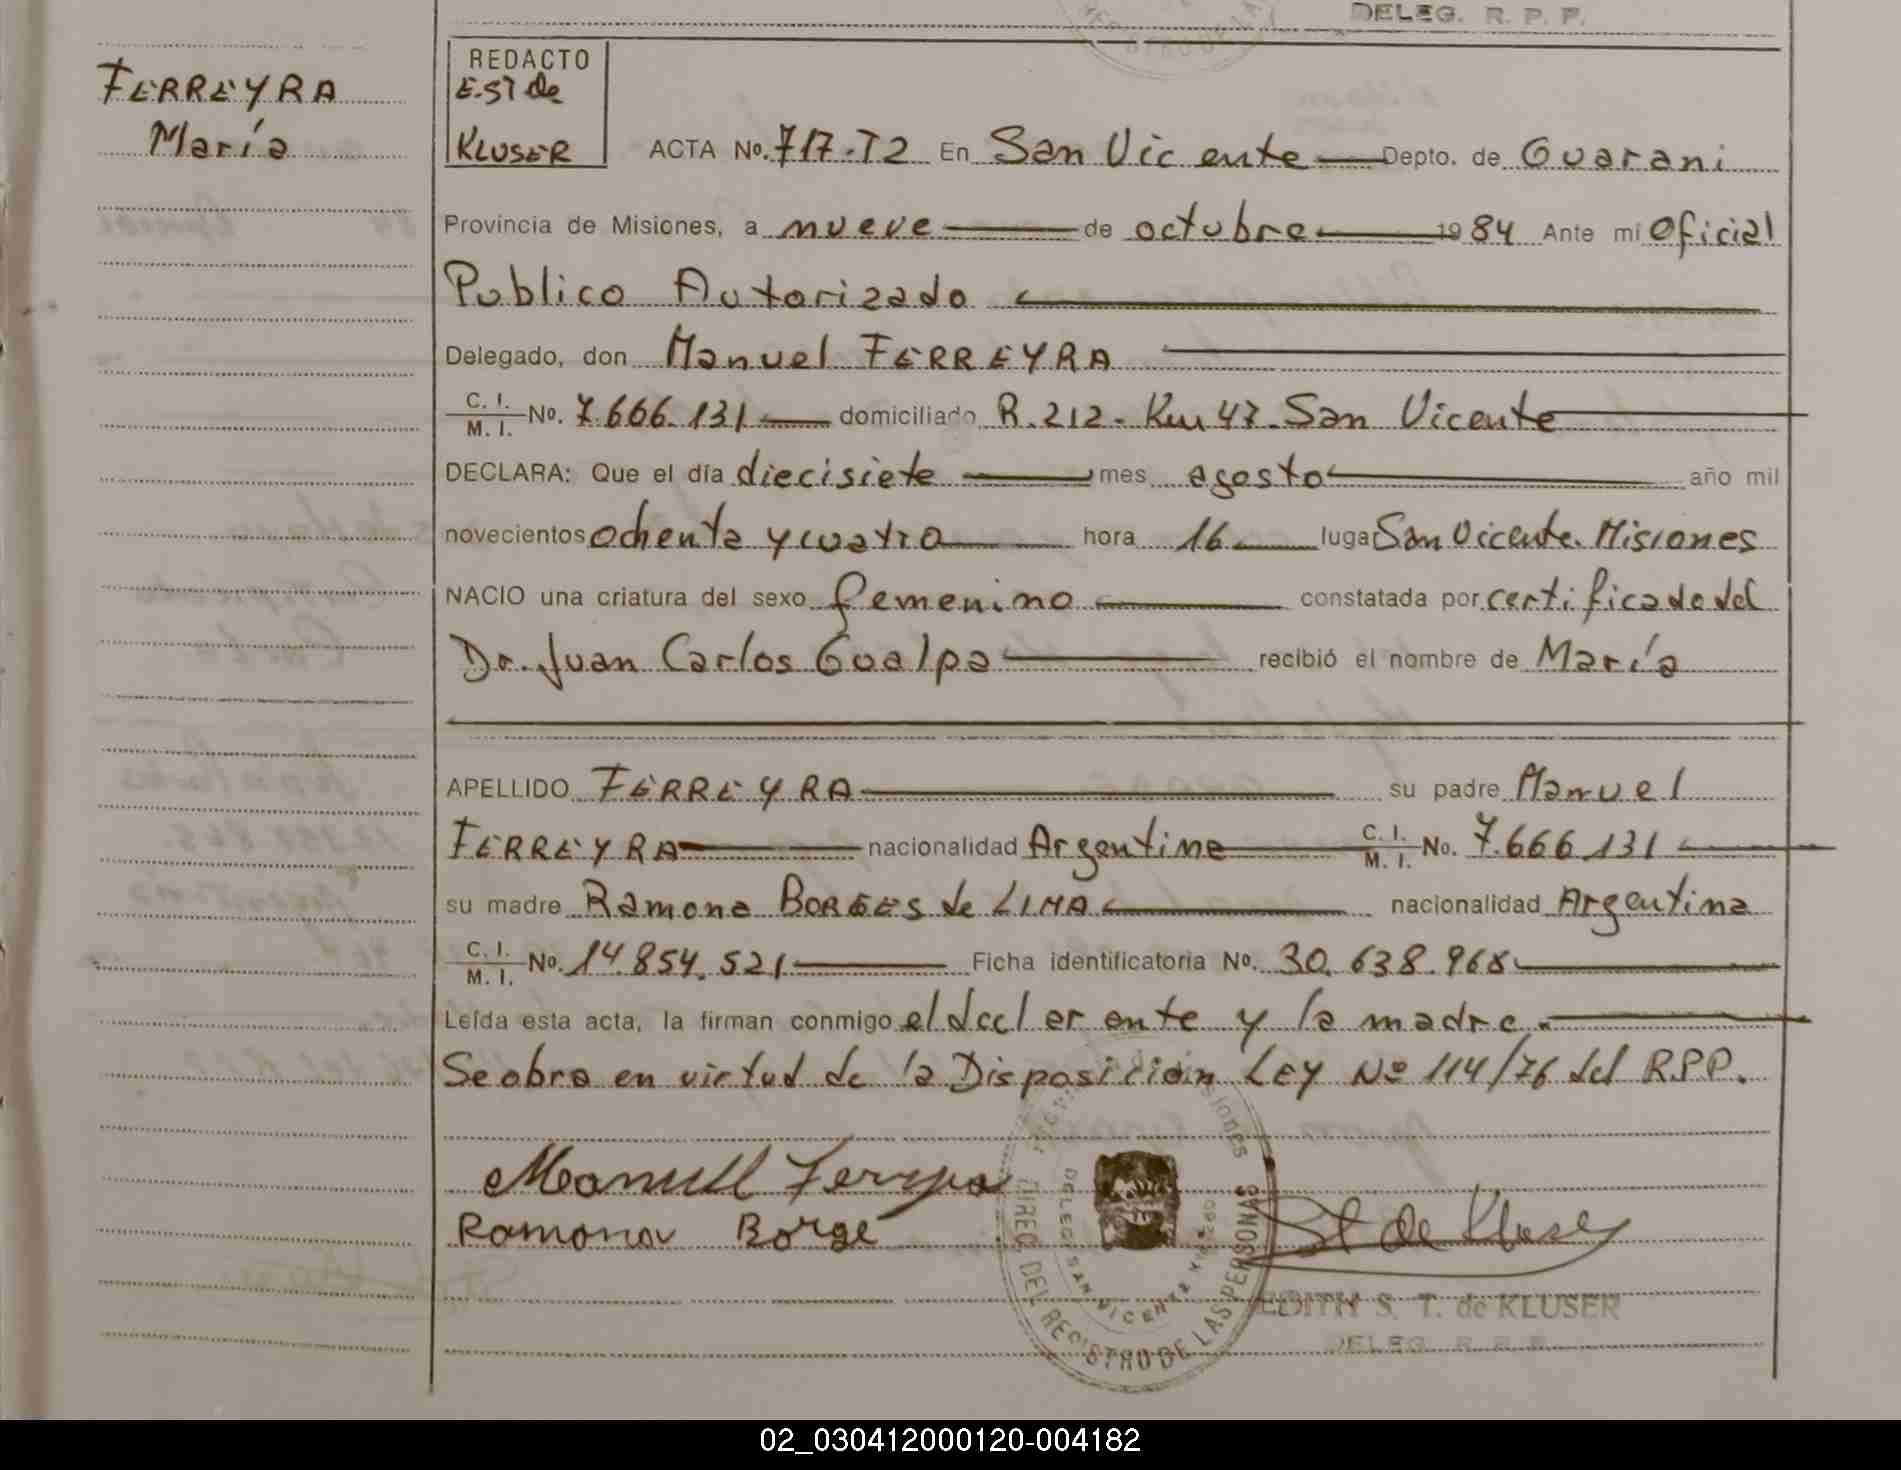 DELEG. R. P. P.
FERREYRA
María
REDACTO
E.ST de
KLUSER
ACTA No. 717-T2 En San Vicente Depto. de Guarani
Provincia de Misiones, a nueve de octubre 1984 Ante mi Oficial
Publico Autorizado
Delegado, don Manuel FERREYRA
C. I.
M. I. No. 7.666.131 domiciliado R.212 - Km 47. San Vicente
DECLARA: Que el día diecisiete mes agosto año mil
novecientos ochenta y cuatro hora 16 lugar San Vicente. Misiones
NACIO una criatura del sexo femenino constatada por certificado del
Dr. Juan Carlos Gualpa recibió el nombre de María
APELLIDO FERREYRA su padre Manuel
FERREYRA nacionalidad Argentina C. I.
M. I. No. 7.666.131
su madre Ramona BORGES de LIMA nacionalidad Argentina
C. I.
M. I. No. 14.854.521 Ficha identificatoria No. 30.638.968
Leída esta acta, la firman conmigo el declarante y la madre.
Se obra en virtud de la Disposición LEY Nº 114/76 del R.P.P.
Manuel Ferreyra
Ramona Borge
St de Kluser
DIREC. DEL REGISTRO DE LAS PERSONAS
DELEG. SAN VICENTE
EDITH S. T. de KLUSER
DELEG. R. P. P.
02_030412000120-004182